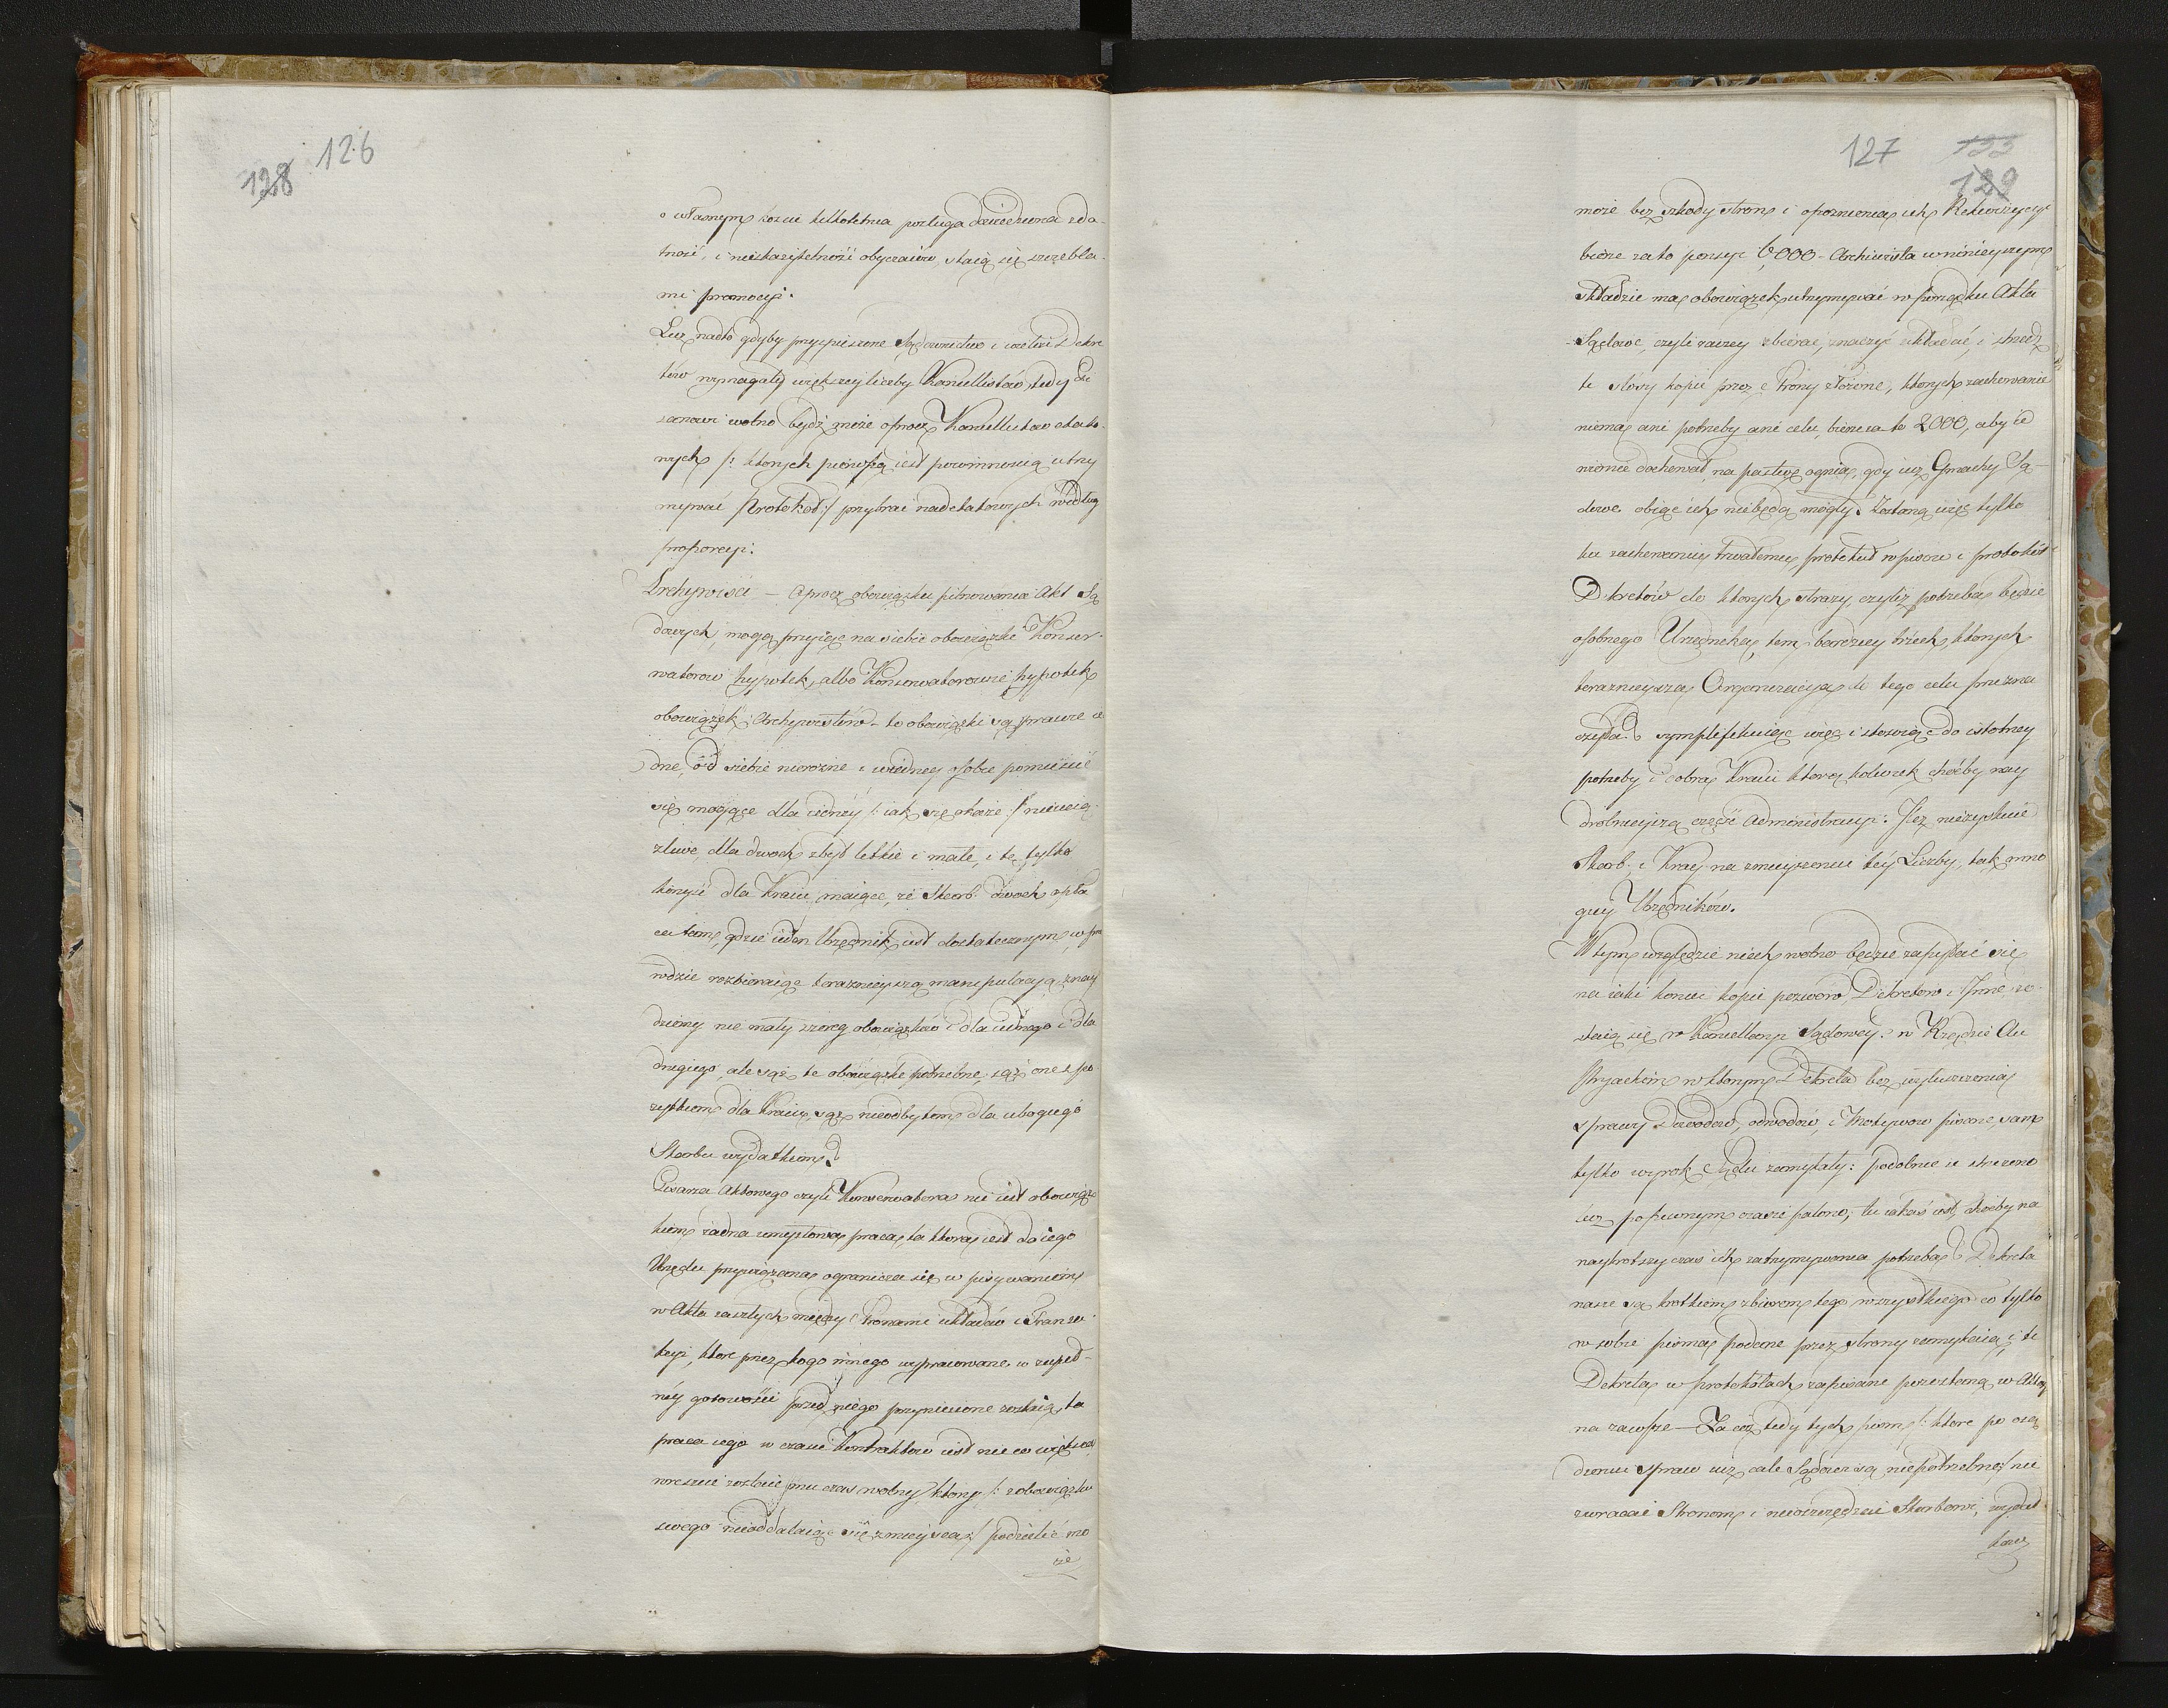 126
128
o własnym koszcie kilkoletnia posługa doświadczona zda-
tność, i nieskazitelność obyczaiów, staią się szczebla-
mi promocyi.
Lecz nadto gdyby przyspieszone Sądownictwo i wielość Dekre
tów wymagały większey liczby Kancellistów, tedy
wolno bydź może oprocz Kancellistów etato-
wych /: ktorych piérwszą iest powinnością utrzy
mywać Protokół :/ przybrać nadetatowych według
proporcyi.
Archywiści — Oprocz obowiązku pilnowania Akt Są
dowych, mogą przyiąć na siebie obowiązki Konser-
watorow hypotek, albo Konserwatorowie hypotek
obowiązek Archywistów - te obowiązki są prawie ie
dne, od siebie nierozne i wiedney osobie pomieścić
się mogące dla iedney /: iak się okaże :/ nieucią-
żliwe, dla dwoch zbyt letkie i małe, i te tylko
korzyść dla Kraiu maiące, że Skarb dwoch opła
ca tam, gdzie ieden Urzędnik iest dostatecznym, w pra
wdzie rozbieraiąc teraznieyszą manipulacyą znay
dziemy nie mały szereg obowiązków i dla iednego i dla
drugiego, ale sąż te obowiązki potrzebne, sąż one z po
żytkiem dla Kraiu, sąż nieodbytem dla ubogiego
Skarbu wydatkiem?
Pisarza Aktowego czyli Konserwatora nie iest obowiąz
kiem żadna umysłowa praca, ta ktora iest do iego
Urzędu przywiązana ogranicza się w pisywaniem
w Akta zaszłych między Stronami układów i Tranza-
kcyi, ktore przez kogo innego wypracowane w zupeł-
néy gotowości przed niego przyniesione zostaią, ta
praca iego w czasie Kontraktow iest nieco większa
wreszcie zostaie mu czas wolny ktory /: z obowiązku
swego nieoddalaiąc się z mieysca :/ podzielić mo
że
127
129
może bez szkody stron i opoznienia ich Rekwizycyi
bierze za to pensyi 6,000 - Archiwista w ninieyszym
składzie ma obowiązek utrzymywać w porządku Akta
Sądowe, czyli raczey zbierać, znaczyć układać, i strzedz
te stosy kopii przez Strony złożone, ktorych zachowanie
niema ani potrzeby ani celu, bierze za to 2000, aby ie
wiernie dochował na pastwę ognia, gdy iuż Gmachy Są-
dowe obiąć ich niebędą mogły. Zostaną więc tylko
ku zachowaniu trwałemu protokuł wpisow i protokół
Dekretów do ktorych straży, czyliż potrzeba będzie
osobnego Urzędnika, tem bardziey trzech, ktorych
teraznieysza Organizacya do tego celu przezna
czyła? symplifikuiąc więc i stosuiąc do istotney
potrzeby i dobra Kraiu ktorą kolwiek choćby nay
drobnieyszą część Administracyi. Ileż niezyskaie
Skarb i Kray na zmnieyszeniu tey Liczby, tak mno
giey Urzędników.
W tym względzie niech wolno będzie zapytać się
na iaki koniec kopie pozwów, Dekretow i Inne zo-
staią się w Kancellaryi Sądowey? w Rządzie Au
stryackim w ktorym Dekreta bez wyłuszczenia
sprawy Dowodów, odwodów, i Motywow pisane, sam
tylko wyrok Sądu zamykały: podobnie ie strzeżono
lecz po pewnym czasie palono; tu iakaś iest, choćby na
naykrotszy czas ich zatrzymywania potrzeba? Dekreta
nasze są krotkiem zbiorem tego wszystkiego co tylko
w sobie pisma podane przez strony zamykaią, i te
Dekreta w protokółach zapisane pozostaną w Aktach
na zawsze — Za coż tedy tych pism /: ktore po osą
dzeniu spraw iuż cale Sądowi są niepotrzebne :/ nie
zwracać Stronom i nieoszczędzić Skarbowi, wydat
kow